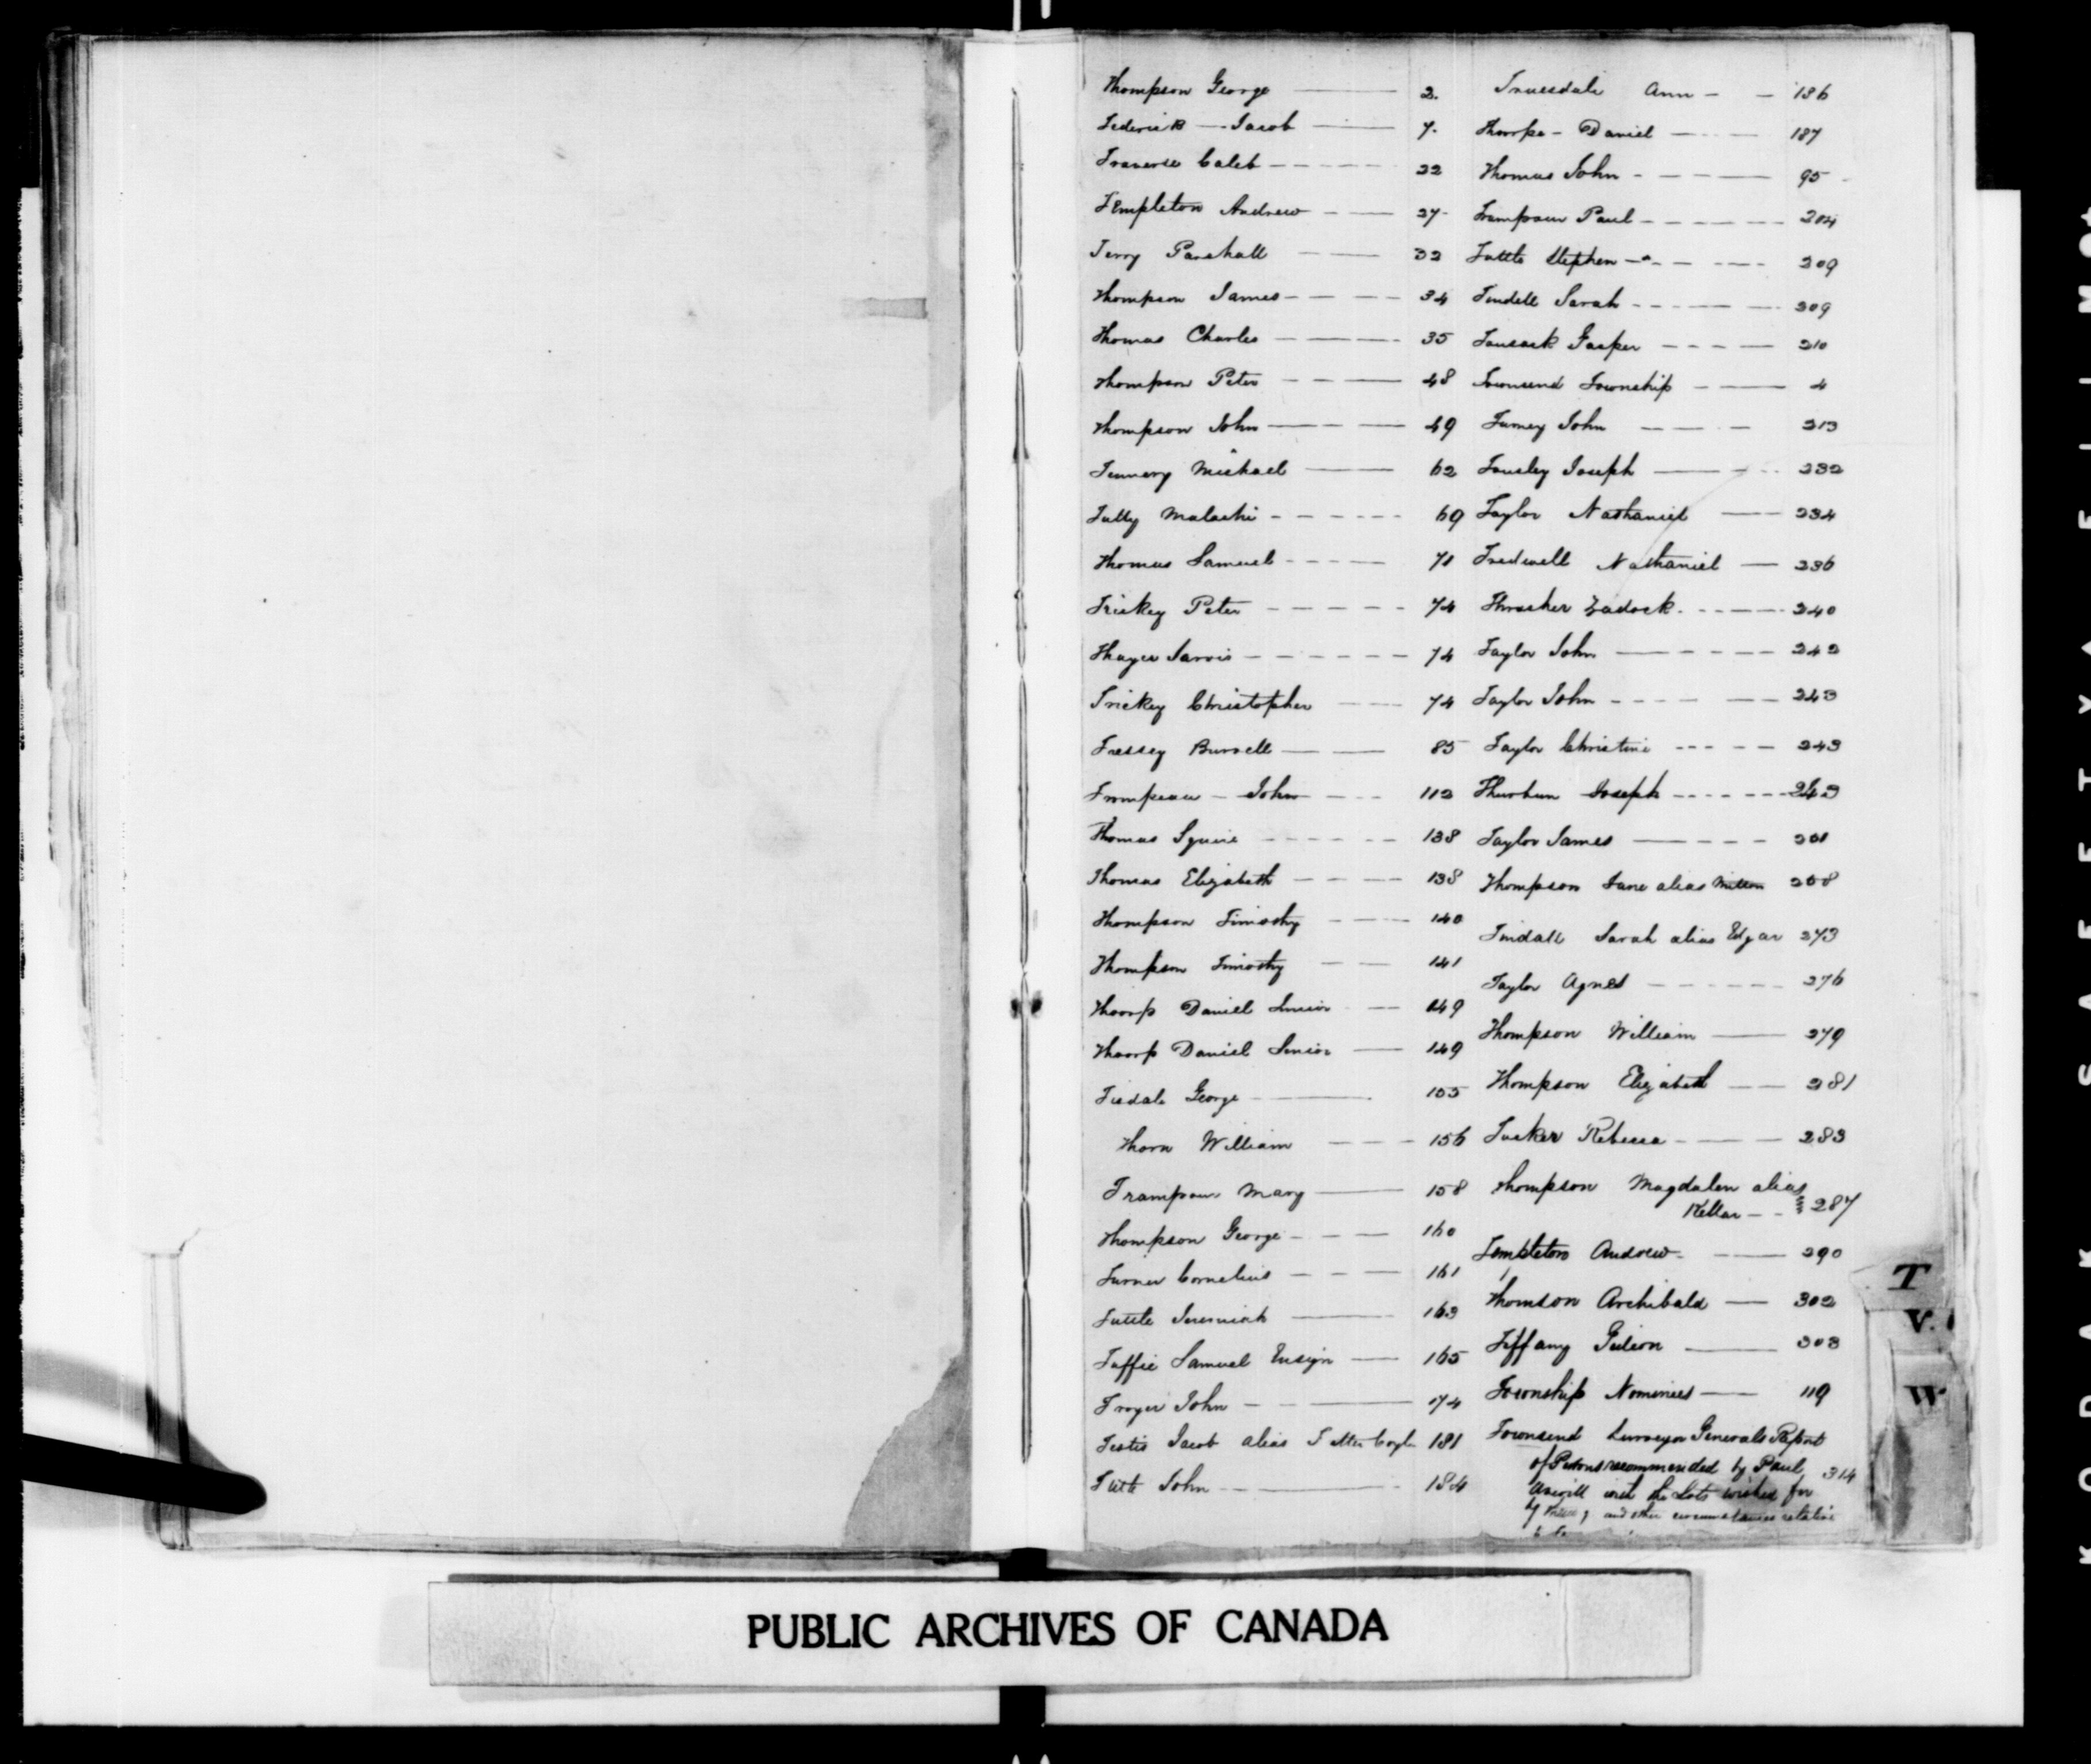 Thompson George 2.
Tederick Jacob 7.
Traverse Caleb 22
Templeton Andrew 27
Terry Parshall 32
Thompson James 34
Thomas Charles 35
Thompson Peter 48
Thompson John 49
Tennery Michael 62
Tully Malachi 69
Thomas Samuel 71
Trickey Peter 74
Thayer Jarvis 74
Trickey Christopher 74
Tressey Burnell 85
Trompeau John 112
Thomas Squire 138
Thomas Elizabeth 138
Thompson Timothy 140
Thompson Timothy 141
Thoorp Daniel Junior 149
Thoorp Daniel Senior 149
Tisdale George 155
Thorn William 156
Trampour Mary 158
Thompson George 160
Turner Cornelius 161
Tuttle Jeremiah 163
Taffie Samuel Ensign 165
Troyer John 174
Testis Jacob alias 181
John 184
Truesdale Ann 186
Thorpe Daniel 187
Thomas John 95
Trampour Paul 204
Tuttle Stephen 209
Tindell Sarah 209
Gasper 210
Townsend Township 4
Turney John 213
Tousley Joseph 232
Taylor Nathaniel 234
Tredwell Nathaniel 236
Thrasher Zadock 240
Taylor John 242
Taylor John 243
Taylor Christine 243
Joseph 243
Taylor James 261
Thompson Jane alias 268
Tindall Sarah alias Edgar 273
Taylor Agnes 276
Thompson William 279
Thompson Elizabeth 281
Tucker Rebecca 283
Thompson Magdalen alias
Kellar 287
Templeton Andrew 290
Thomson Archibald 302
Tiffany Gideon 303
Township Nominees 119
Townsend Surveyor Generals Report
of Persons recommended by Paul 314
Averill with the Lots wished for
by and other circumstances relative
T
V.
W
PUBLIC ARCHIVES OF CANADA